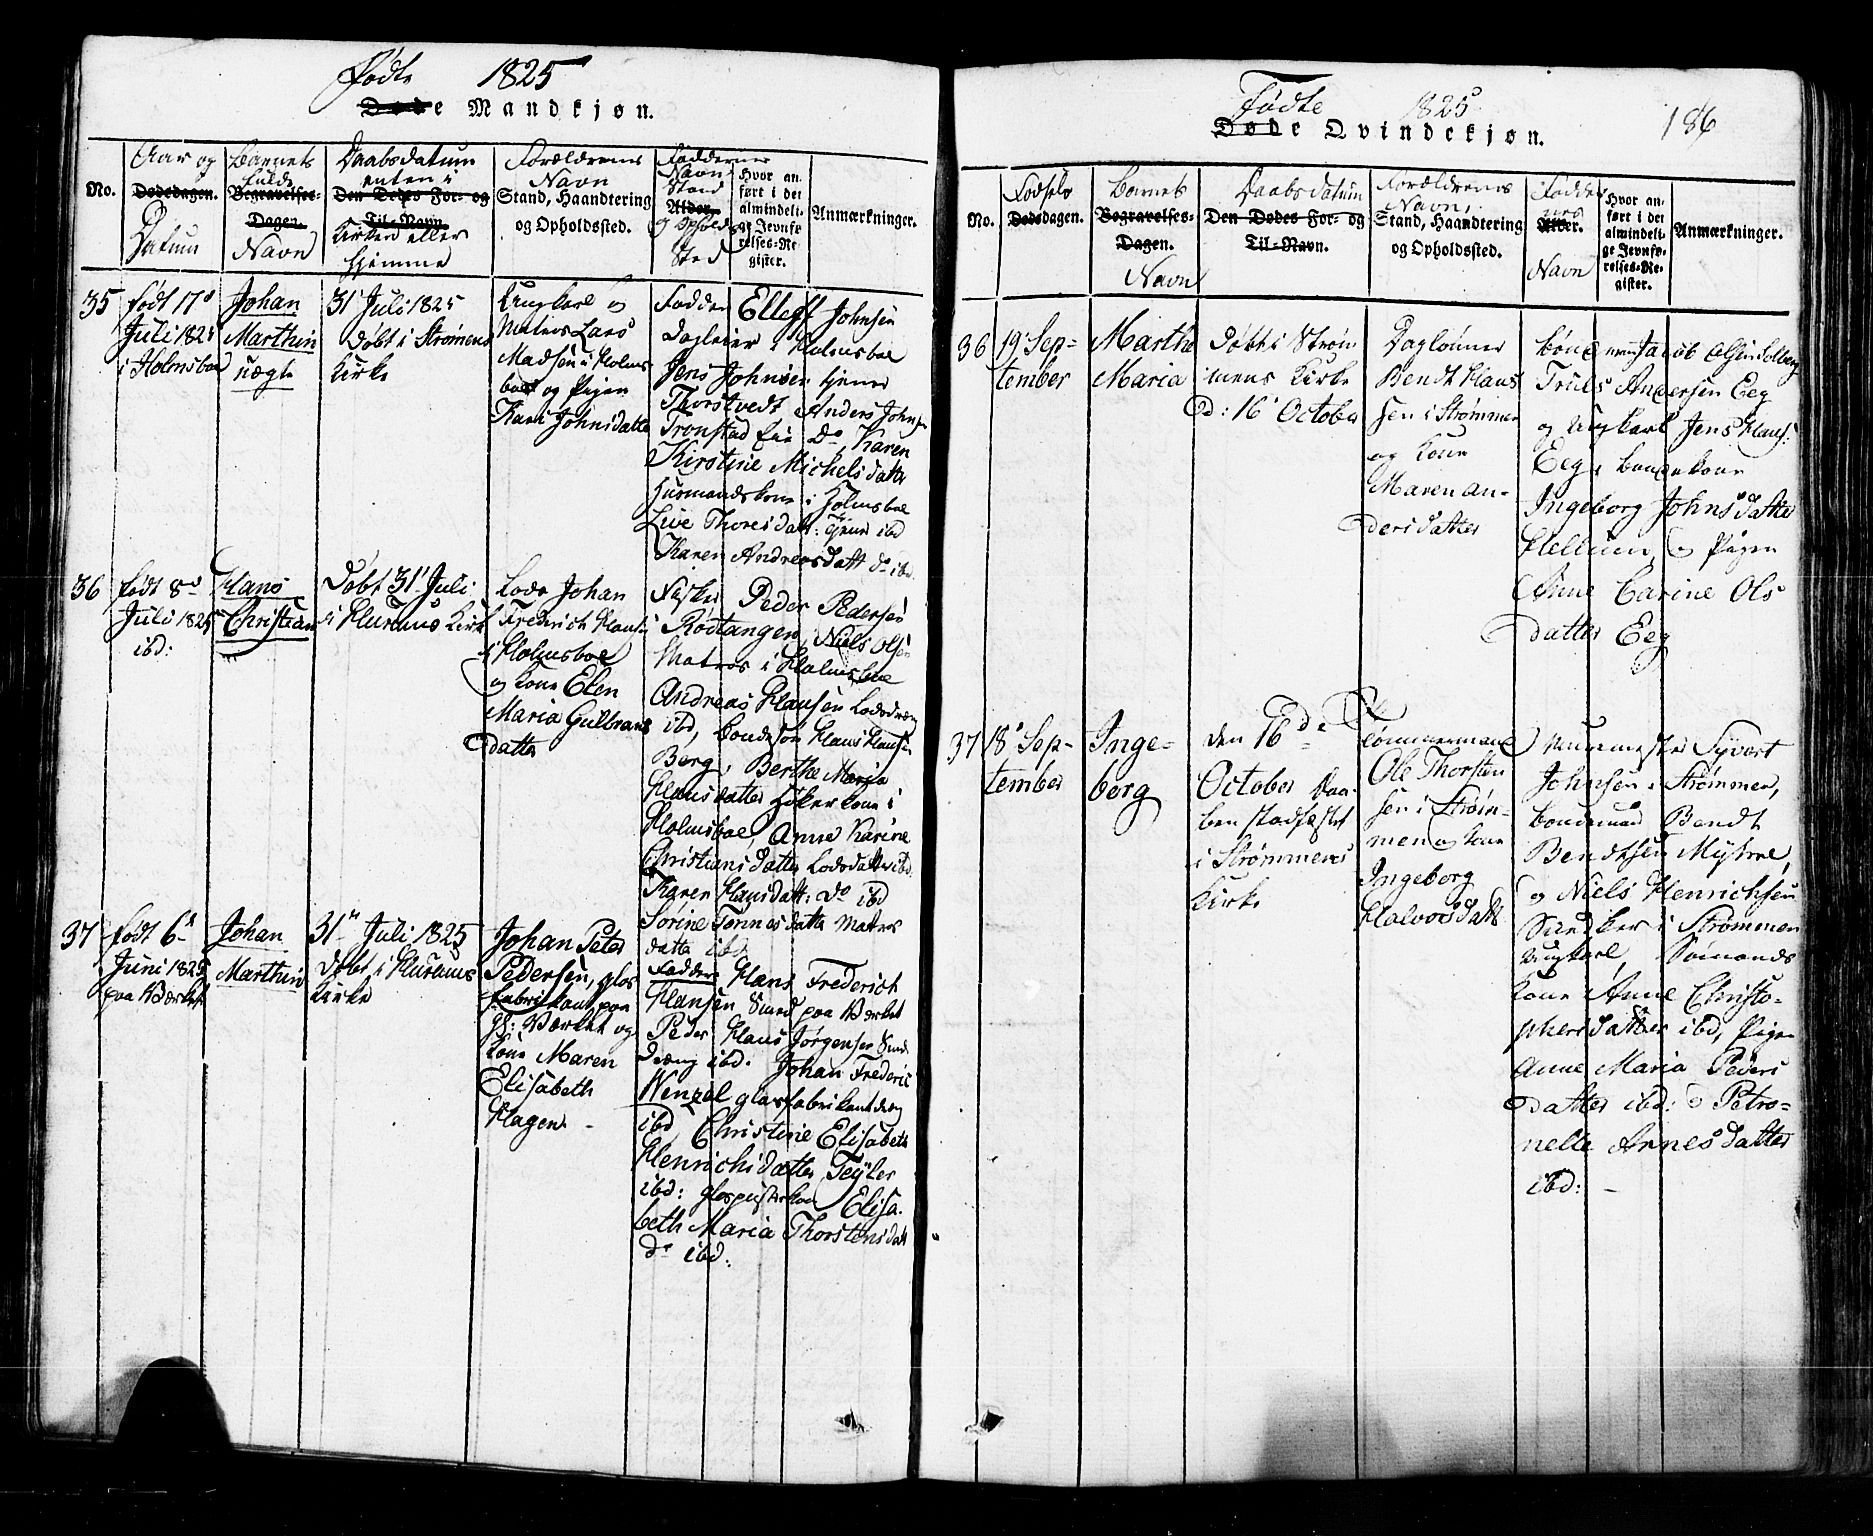 Fødte 1825
Døde Mandkjøn.
No.
Aar og
Dødedagen.
Datum
Barnets
fulde
Begravelses-
Dagen.
Navn
Daabsdatum
enten i
Den Dødes For- og
Til-Navn.
Kirken eller
hjemme
Forældrenes
Navn
Stand, Haandtering
og Opholdssted.
Faddernes
Navn
Stand
Alder.
og Opholds
Sted
Hvor an-
ført i det
almindeli-
ge Jevnfø-
relses-Re-
gister.
Anmærkninger.
35
født 17de
Juli 1825
i Holmsboe
Johan
Marthin
uægte
31 Juli 1825
Døbt i Strømens
Kirke
Ungkarl og
Matros Lars
Madsen i Holms
boe og Pigen
Kari Johnsdatter
Fadder Elleff Johnsen
Dagleier i Holmsboe
Jens Johnsen tjener
Thorstvedt Anders Johnsen
Tronstad Eie do Karen
Kirstine Michelsdatter
Husmandskone i Holmsboe
Live Thoresdatt: tjener ibd
Karen Andreasdatt do ibd
36
født 8de
Juli 1825
ibd:
Hans
Christian
Døbt 31 Juli
i Hurums Kirke
Lods Johan
Frederich Hansen
i Holmsboe
og Kone Elen
Maria Gulbrans
datter
Fisker Peder Pedersen
Rødtangen, Niels Olsen
Matros i Holmsboe
Andreas Hansen Lodsdreng
ibd, Bondesøn Hans Hansen
Berg, Berthe Maria
Hansdatter Høkerkone i
Holmsboe, Anne Karine
Christiansdatter Lodsdatter ibd.
Karen Hansdatt: do ibd
Sorine Tønnesdatter Matros
datter ibd.
37
født 6te
Juni 1825
paa Værket
Johan
Marthin
31te Juli 1825
Døbt i Hurums
Kirke
Johan Peter
Pedersen, glas
fabrikant paa
gl: Værket og
Kone Maren
Elisabeth
Hagen
Fadder Hans Frederich
Hansen Smed paa Værket
Peder Hans Jørgensen Smed
dreng ibd. Johan Frederic
Wenzel glasfabrikantdreng
ibd Christine Elisabeth
Henrichsdatter Teyler
ibd: glaspusterkone Elisa-
beth Maria Thorstensdatt
do ibd.
Fødte 1825
Døde Qvindekjøn.
186
No.
Fødsels
Dødsdagen.
Barnets
Begravelses-
Dagen.
Navn
Daabsdatum
Den Dødes For- og
Til-Navn.
Forældrenes
Navn,
Stand, Haandtering
og Opholdssted.
Fadder-
nes
Alder.
Navn
Hvor an-
ført i det
almindeli-
ge Jevnfø-
relses-Re-
gister.
Anmærkninger.
36
19 Sep-
tember
Marthe
Maria
Døbt i Strøm
mens Kirke
d: 16 October
Daglønner
Bendt Hans
sen i Strømmen
og Kone
Maren An-
dersdatter
Bondemand Jacob Olsen Solberg
Truls Andersen Eeg
og Ungkarl Jens Hans:
Eeg, Bondekone
Ingeborg Johnsdatter
Hellum, og Pigen
Anne Carine Ols
datter Eeg
37
18 Sep-
tember
Inge-
borg
den 16de
October Daa-
ben stadfæstet
i Strømmens
Kirke
Tømmermand
Ole Thorsten
sen i Strøm-
men og Kone
Ingeborg
Halvorsdatt
Syvert
Johnsen i Strømmen,
Bondemand Bendt
Bendtsen Myhre,
og Niels Henrichsen
Sandker i Strømmen
Ungkarl, Sømands
Kone Anne Christo-
phersdatter ibd, Pigen
Anne Maria Peders
datter ibd: og Petro-
nelle Arnesdatter
ibd: -